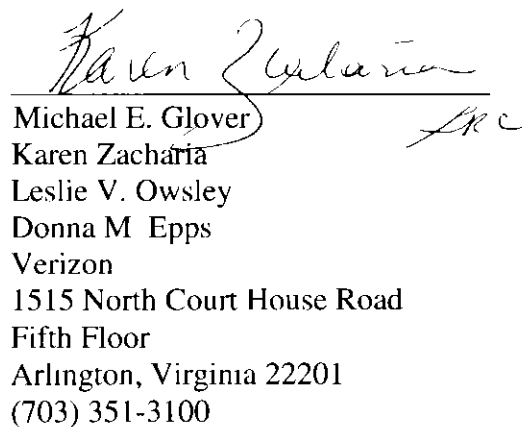 Karen Zacharia
Michael E. Glover
Karen Zacharia
Leslie V. Owsley
Donna M Epps
Verizon
1515 North Court House Road
Fifth Floor
Arlington, Virginia 22201
(703) 351-3100